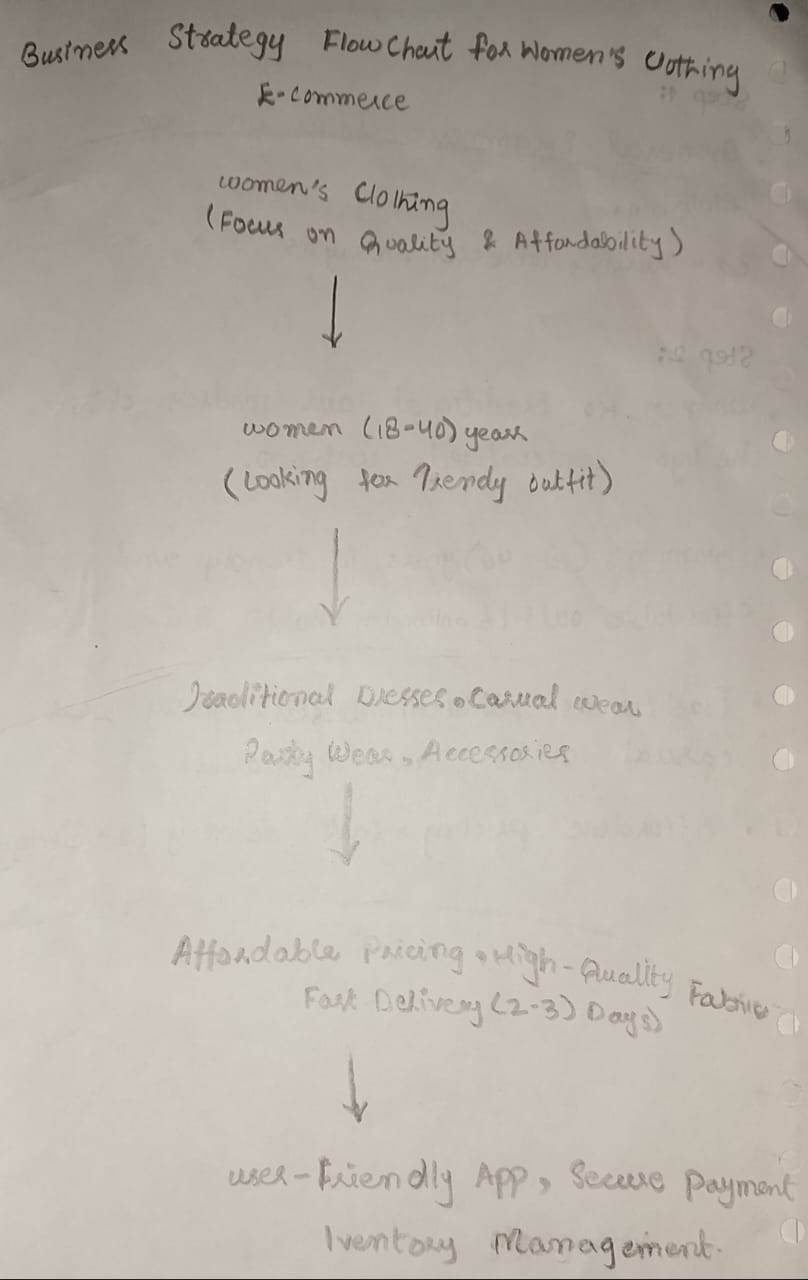 Business Strategy Flow Chart for Women's Clothing
E-commerce
women's Clothing
(Focus on Quality & Affordability)
women (18-40) years
(Looking for Trendy outfit)
Traditional Dresses, Casual wear
Party Wear, Accessories
Affordable Pricing, High-Quality Fabric
Fast Delivery (2-3) Days)
user-Friendly App, Secure Payment
Iventory Management.
Step 1:
Step 2: